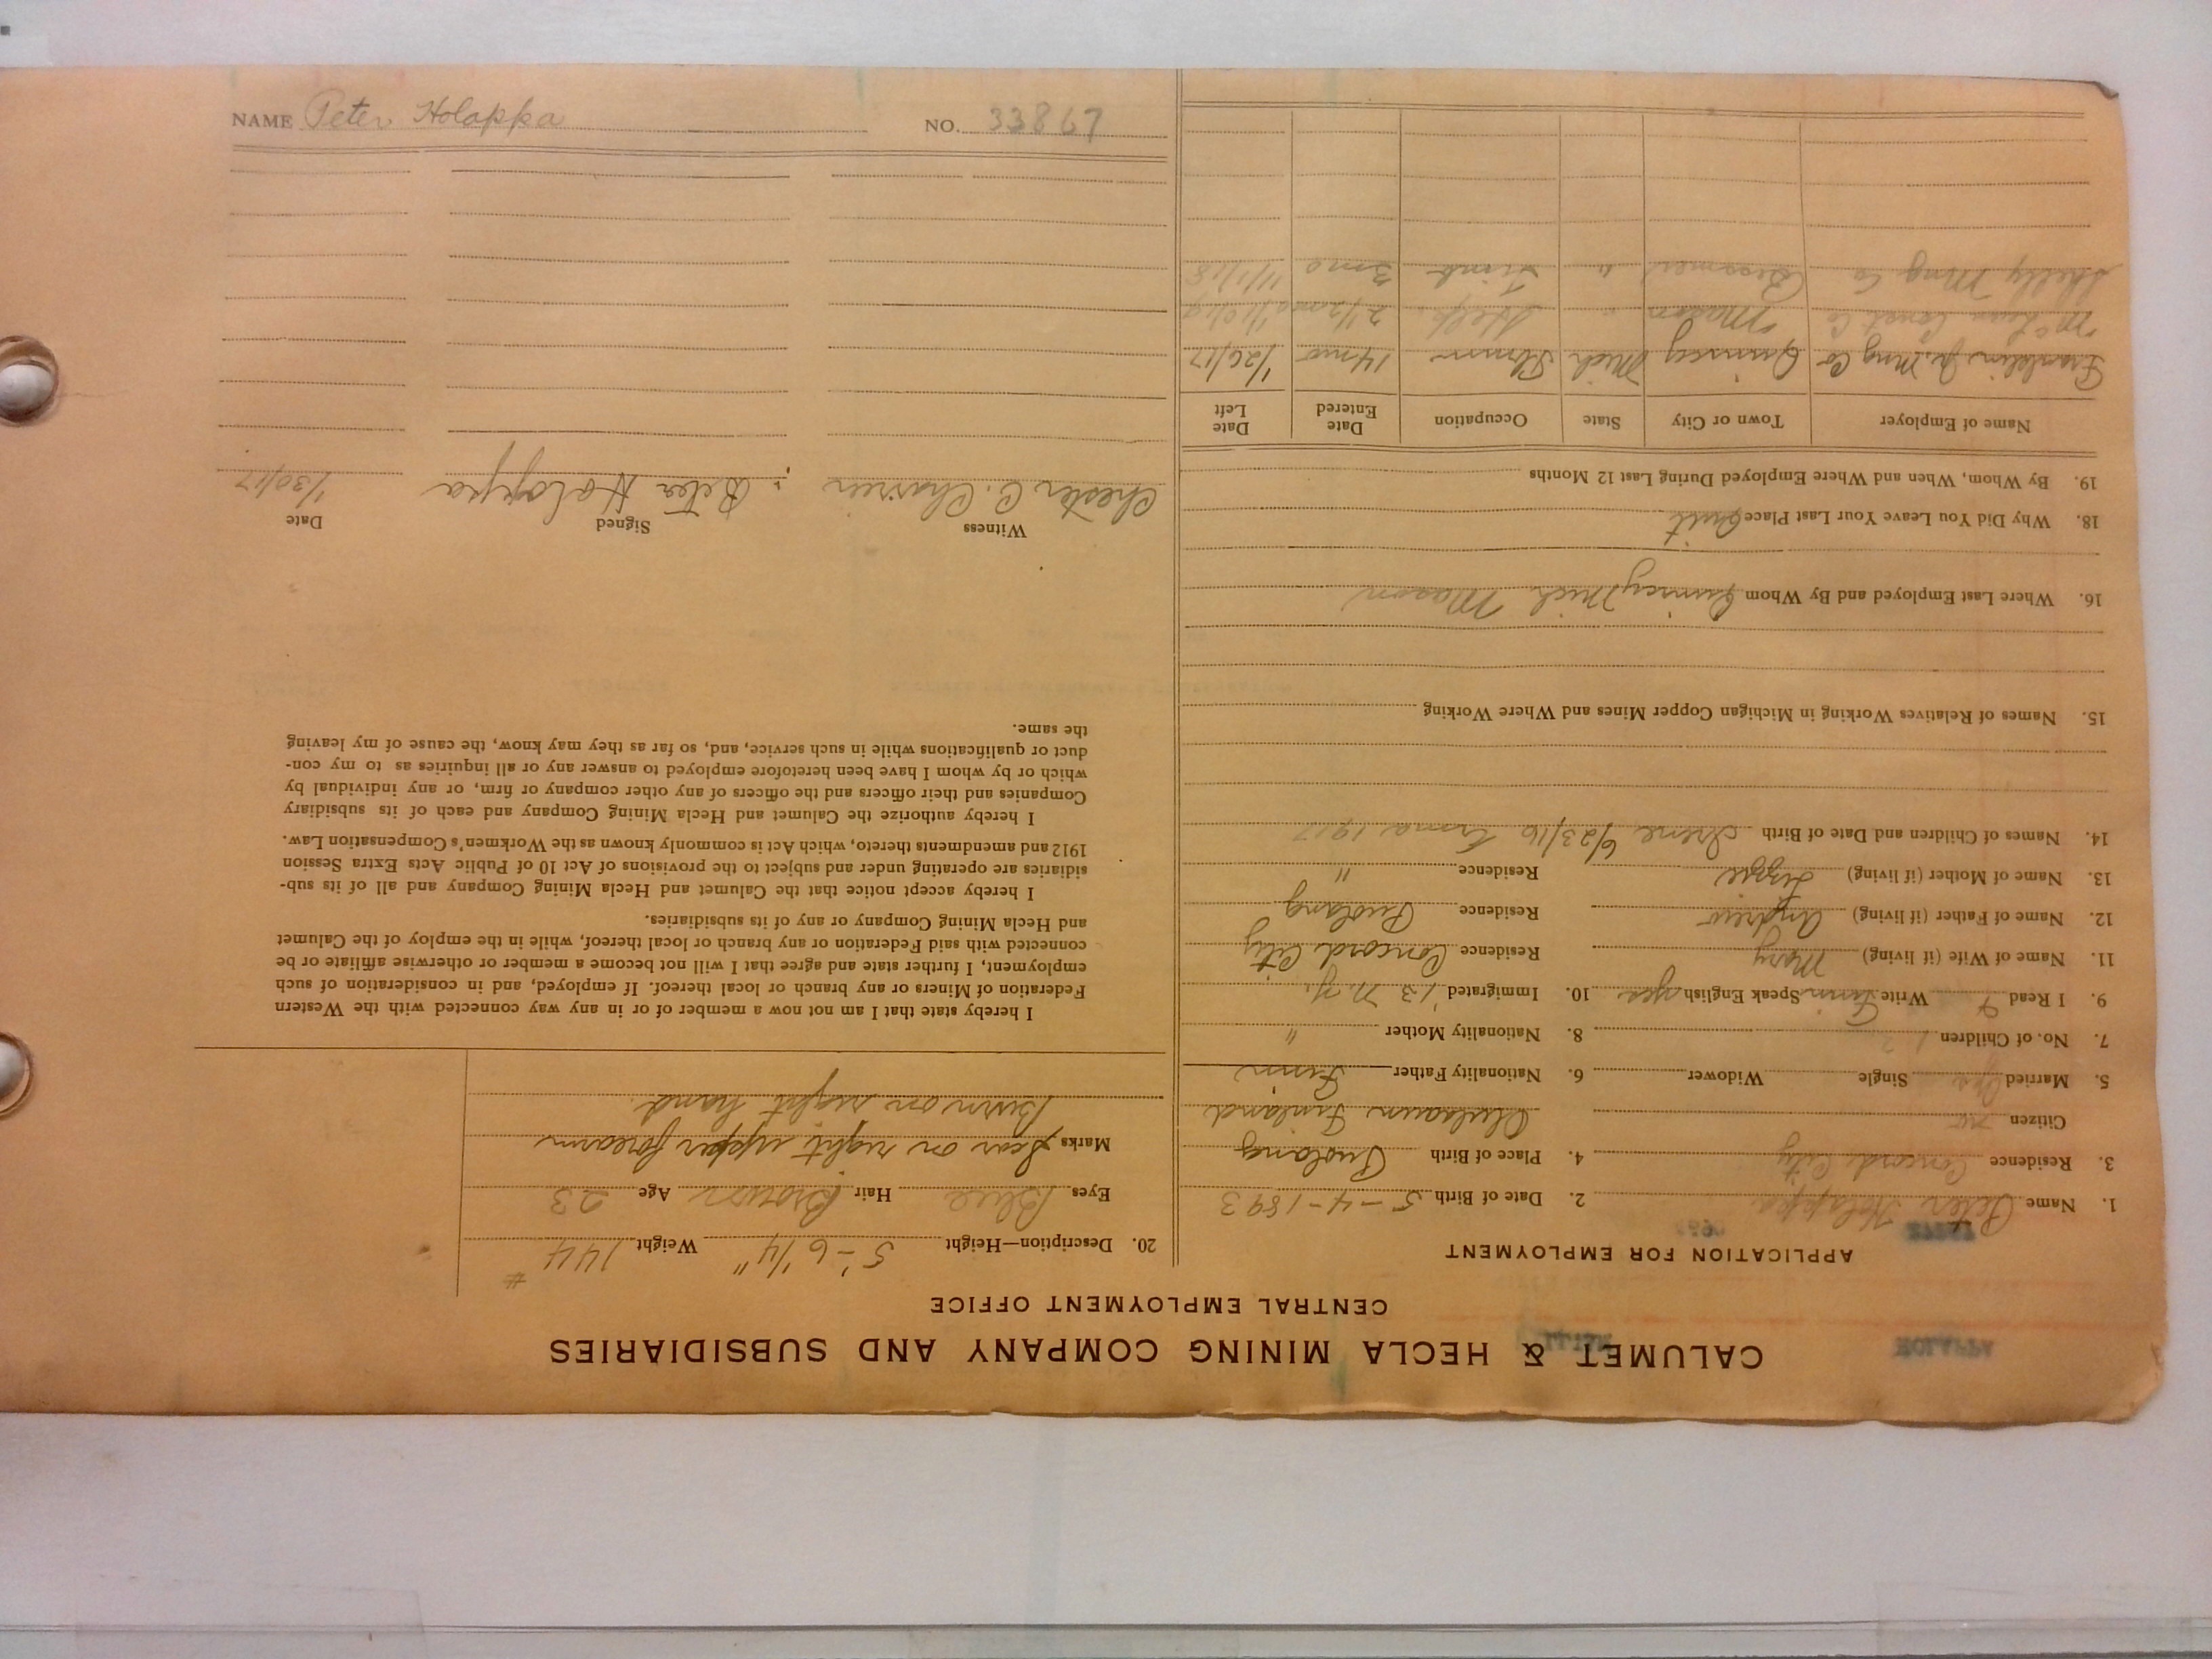 CALUMET & HECLA MINING COMPANY AND SUBSIDIARIES
CENTRAL EMPLOYMENT OFFICE
APPLICATION FOR EMPLOYMENT
1. Name Peter Holappa 2. Date of Birth 5-4-1893
3. Residence Concord City 4. Place of Birth Pudas
Citizen no Finland
5. Married yes Single Widower 6. Nationality Father Finn
7. No. of Children 8. Nationality Mother "
9. I Read Write Finn Speak English yes 10. Immigrated '13 N.Y.
11. Name of Wife (if living) Mary Residence Concord City
12. Name of Father (if living) Andrew Residence
13. Name of Mother (if living) Lizzie Residence "
14. Names of Children and Date of Birth Irene 6/23/16 Erma 1917
15. Names of Relatives Working in Michigan Copper Mines and Where Working
16. Where Last Employed and By Whom Quincy Mich Mason
18. Why Did You Leave Your Last Place Quit
19. By Whom, When and Where Employed During Last 12 Months
Name of Employer Town or City State Occupation Date Entered Date Left
Franklin Jr. Mng Co Quincy Mich 14 mo 1/26/17
Const. Co Mason " Help. 2 1/2 mo
Mng Co Bessemer " 3 mo 11/1/18
20. Description—Height 5'-6 1/4" Weight 144 #
Eyes Blue Hair Brown Age 23
Marks Scar on right upper forearm
Burn on right hand.
I hereby state that I am not now a member of or in any way connected with the Western
Federation of Miners or any branch or local thereof. If employed, and in consideration of such
employment, I further state and agree that I will not become a member or otherwise affiliate or be
connected with said Federation or any branch or local thereof, while in the employ of the Calumet
and Hecla Mining Company or any of its subsidiaries.
I hereby accept notice that the Calumet and Hecla Mining Company and all of its sub-
sidiaries are operating under and subject to the provisions of Act 10 of Public Acts Extra Session
1912 and amendments thereto, which Act is commonly known as the Workmen's Compensation Law.
I hereby authorize the Calumet and Hecla Mining Company and each of its subsidiary
Companies and their officers and the officers of any other company or firm, or any individual by
which or by whom I have been heretofore employed to answer any or all inquiries as to my con-
duct or qualifications while in such service, and, so far as they may know, the cause of my leaving
the same.
Witness Signed Date
Chester C. Peter Holappa 1/30/17
NAME Peter Holappa NO. 33867